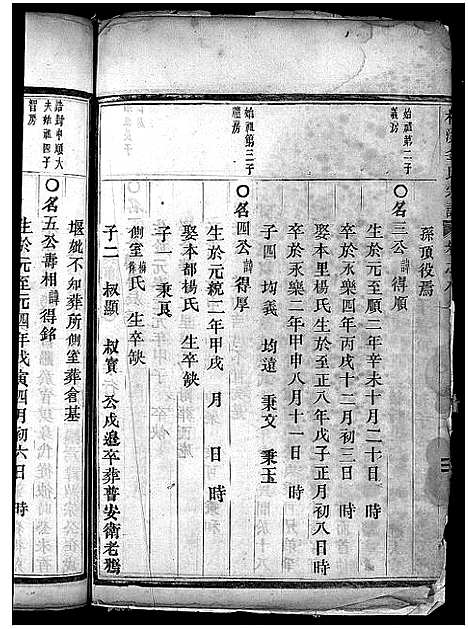 孫頂役焉
始祖第二子
義房
○名三公諱得順
生於元至順二年辛未十月二十日 時
卒於永樂四年丙戌十二月初三日 時
娶本里楊氏生於至正八年戊子正月初八日時
卒於永樂二年甲申八月十一日 時
子四 均義 均遠 秉文 秉玉
始祖第三子
禮房
○名四公諱得厚
生於元統二年甲戌 月 日 時
娶本都楊氏 生卒缺
子一 秉良
側室楊氏 生卒缺
子二 叔顯 叔實 公戍邊卒葬普安衛老鴉
堰妣不知葬所側室葬會基
誥封中順大
夫始祖四子
智房
○名五公壽相諱得銘
生於元至元四年戊寅四月初六日 時